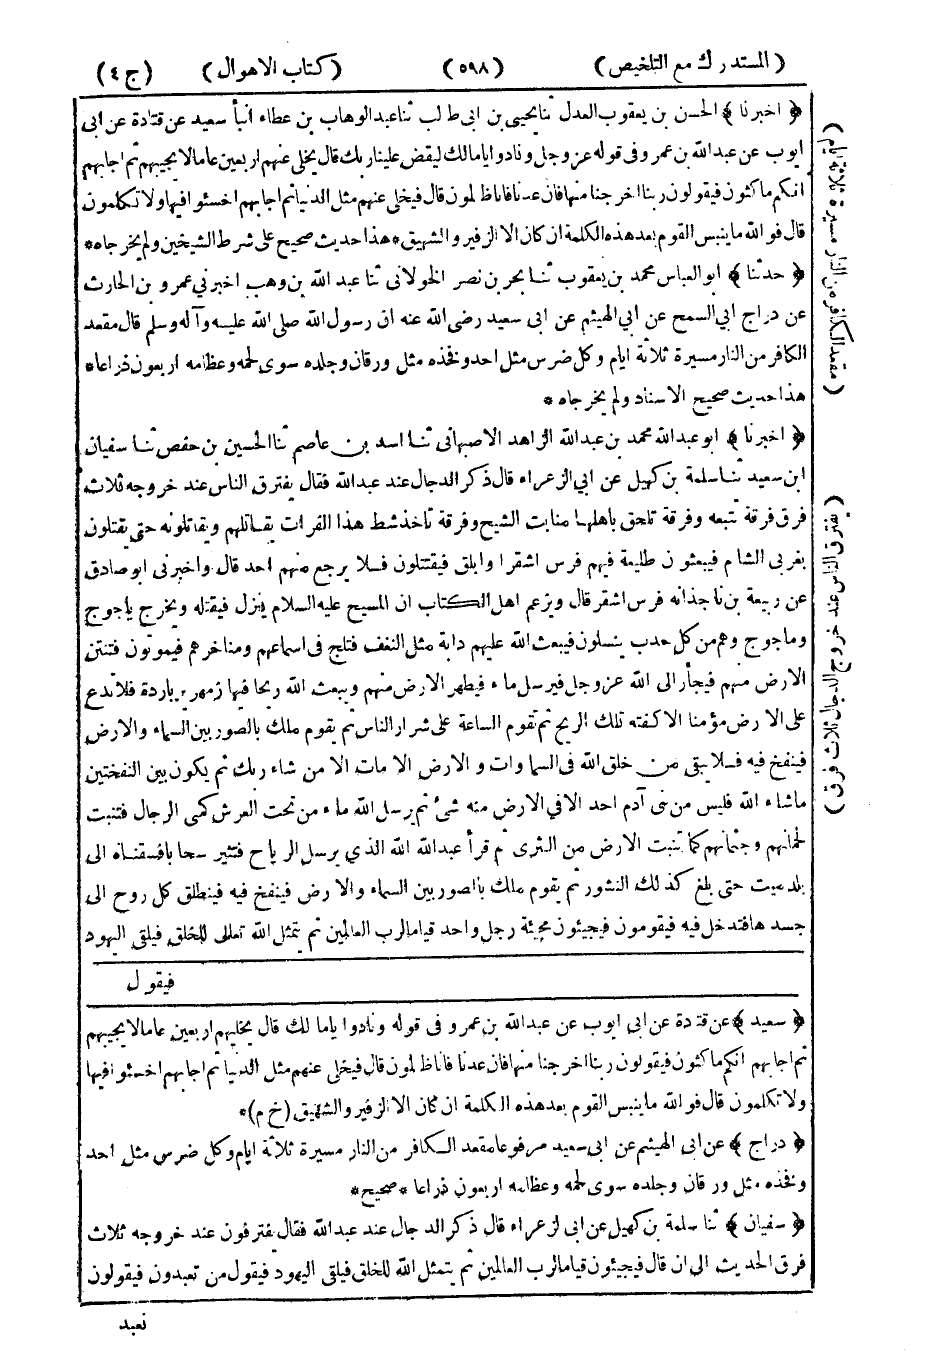 (المستدرك مع التلخيص) (٥٩٨) (كتاب الاهوال) (ج ٤)
﴿ اخبرنا ﴾ الحسن بن يعقوب العدل ثنا يحيى بن ابى طالب ثنا عبد الوهاب بن عطاء انبأ سعيد عن قتادة عن ابى
ايوب عن عبد الله بن عمرو فى قوله عز وجل ونادوا يا مالك ليقض علينا ربك قال يخلى عنهم اربعين عاما لا يجيبهم ثم اجابهم
انكم ماكثون فيقولون ربنا اخرجنا منها فان عدنا فانا ظالمون قال فيخلى عنهم مثل الدنيا ثم اجابهم اخسئوا فيها ولا تكلمون
قال فوالله ما ينبس القوم بعد هذه الكلمة ان كان الا الزفير والشهيق * هذا حديث صحيح على شرط الشيخين ولم يخرجاه *
﴿ حدثنا ﴾ ابو العباس محمد بن يعقوب ثنا بحر بن نصر الخولانى ثنا عبد الله بن وهب اخبرني عمرو بن الحارث
عن دراج ابي السمح عن ابي الهيثم عن ابى سعيد رضى الله عنه ان رسول الله صلى الله عليه وآله وسلم قال مقعد
الكافر من النار مسيرة ثلاثة ايام وكل ضرس مثل احد وفخذه مثل ورقان وجلده سوى لحمه وعظامه اربعون ذراعا *
هذا حديث صحيح الاسناد ولم يخرجاه *
﴿ اخبرنا ﴾ ابو عبد الله محمد بن عبد الله الزاهد الاصبهانى ثنا اسد بن عاصم ثنا الحسين بن حفص ثنا سفيان
ابن سعيد ثنا سلمة بن كهيل عن ابي الزعراء قال ذكر الدجال عند عبد الله فقال يفترق الناس عند خروجه ثلاث
فرق فرقة تتبعه وفرقة تلحق باهلها منابت الشيح وفرقة تأخذ شط هذا الفرات يقاتلهم ويقاتلونه حتى يقتلون
بغربى الشام فيبعثون طليعة فيهم فرس اشقر او ابلق فيقتتلون فلا يرجع منهم احد قال واخبرنى ابو صادق
عن ربيعة بن ناجذ انه فرس اشقر قال ويزعم اهل الكتاب ان المسيح عليه السلام ينزل فيقتله ويخرج ياجوج
وماجوج وهم من كل حدب ينسلون فيبعث الله عليهم دابة مثل النغف فتلج فى اسماعهم ومناخرهم فيموتون فتنتن
الارض منهم فيجأر الى الله عز وجل فيرسل ماء فيطهر الارض منهم ويبعث الله ريحا فيها زمهرير باردة فلا تدع
على الارض مؤمنا الا كفته تلك الريح ثم تقوم الساعة على شرار الناس ثم يقوم ملك بالصور بين السماء والارض
فينفخ فيه فلا يبقى من خلق الله فى السماوات والارض الا مات الا من شاء ربك ثم يكون بين النفختين
ما شاء الله فليس من بنى آدم احد الا فى الارض منه شئ ثم يرسل الله ماء من تحت العرش كمنى الرجال فتنبت
لحمانهم وجثمانهم كما تنبت الارض من الثرى ثم قرأ عبد الله الله الذي يرسل الرياح فتثير سحابا فسقناه الى
بلد ميت حتى بلغ كذلك النشور ثم يقوم ملك بالصور بين السماء والارض فينفخ فيه فينطلق كل روح الى
جسدها فتدخل فيه فيقومون فيجيئون مجيئة رجل واحد قياما لرب العالمين ثم يتمثل الله تعالى للخلق فيلقى اليهود
فيقول
﴿ سعيد ﴾ عن قتدة عن ابي ايوب عن عبد الله بن عمرو فى قوله ونادوا يا مالك قال يخليهم اربعين عاما لا يجيبهم
ثم اجابهم انكم ماكثون فيقولون ربنا اخرجنا منها فان عدنا فانا ظالمون قال فيخلى عنهم مثل الدنيا ثم اجابهم اخسئوا فيها
ولا تكلمون قال فوالله ما ينبس القوم بعد هذه الكلمة ان كان الا الزفير والشهيق (خ م) *
﴿ دراج ﴾ عن ابى الهيثم عن ابى سعيد مرفوعا مقعد الكافر من النار مسيرة ثلاثة ايام وكل ضرس مثل احد
وفخذه مثل ورقان وجلده سوى لحمه وعظامه اربعون ذراعا * صحيح *
﴿ سفيان ﴾ ثنا سلمة بن كهيل عن ابى الزعراء قال ذكر الدجال عند عبد الله فقال يفترقون عند خروجه ثلاث
فرق الحديث الى ان قال فيجيئون قياما لرب العالمين ثم يتمثل الله للخلق فيلقى اليهود فيقول من تعبدون فيقولون
نعبد
(مقعد الكافر من النار مسيرة ثلاثة ايام)
(يفترق الناس عند خروج الدجال ثلاث فرق)